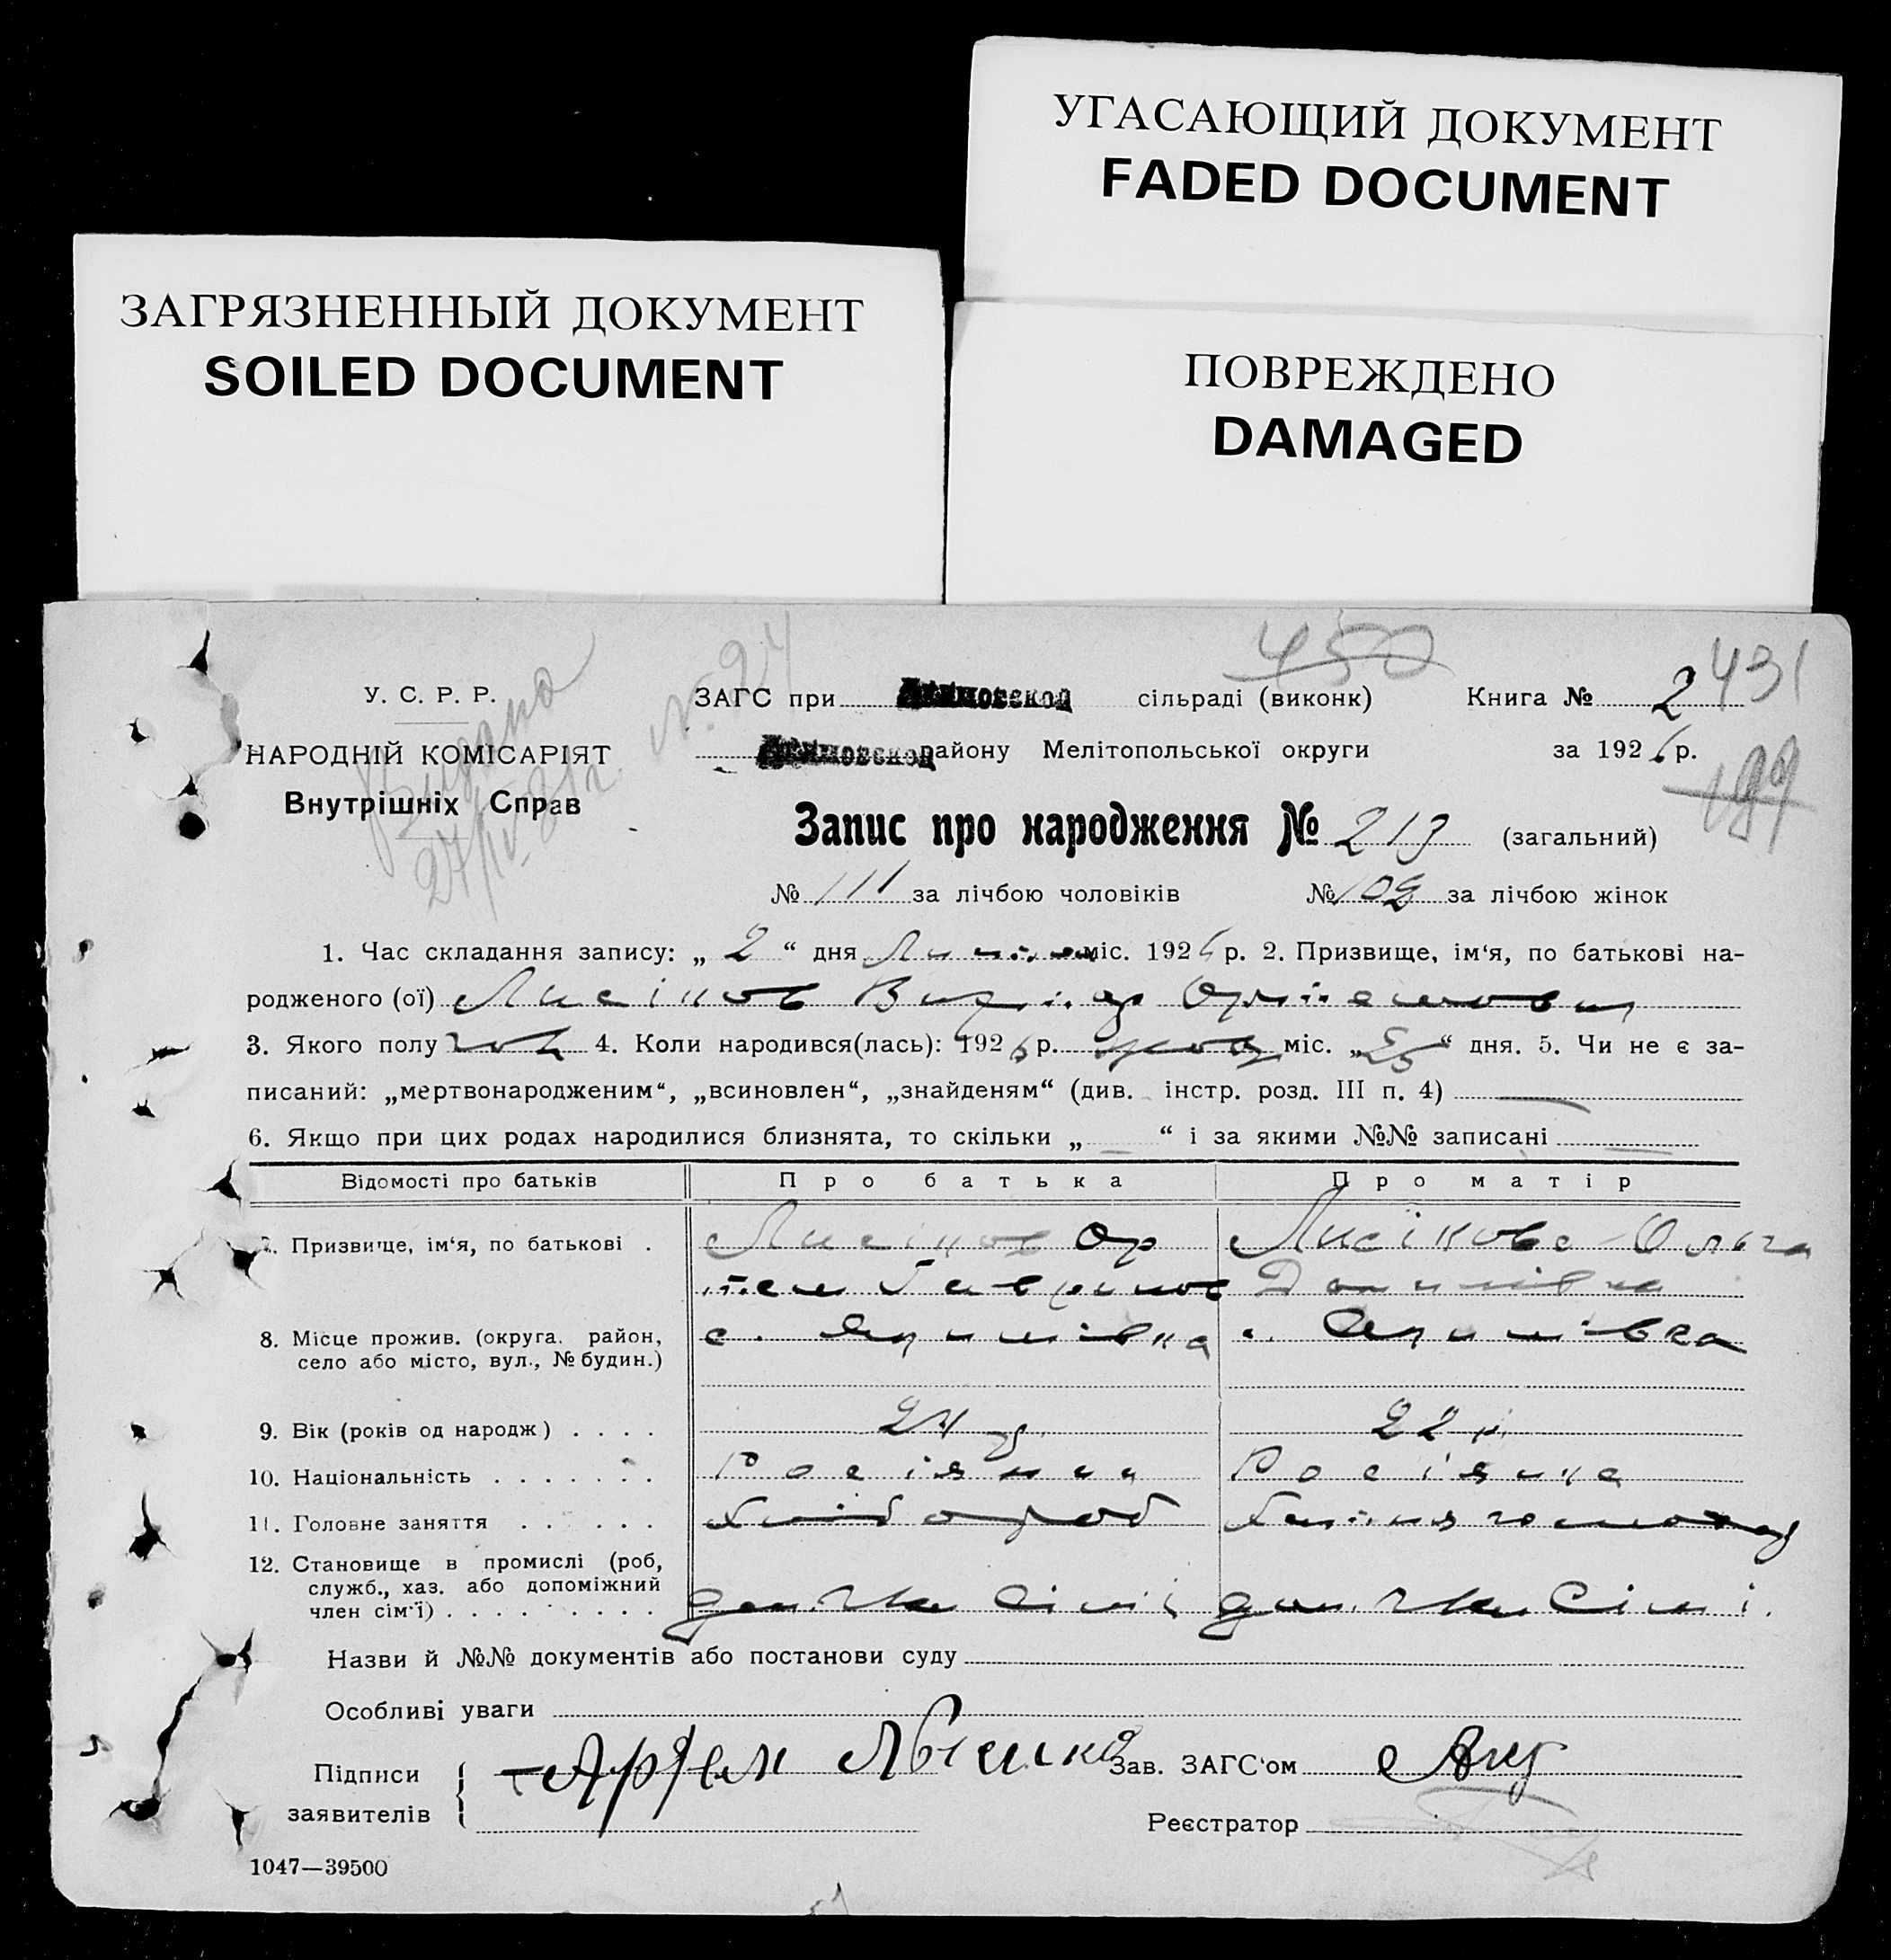 УГАСАЮЩИЙ ДОКУМЕНТ
FADED DOCUMENT
ЗАГРЯЗНЕННЫЙ ДОКУМЕНТ
SOILED DOCUMENT
ПОВРЕЖДЕНО
DAMAGED
450
431
У. С. Р. Р.
НАРОДНІЙ КОМІСАРІЯТ
Внутрішніх Справ
Видано
№ 24
ЗАГС при сільраді (виконк) Книга № 2
району Мелітопольської округи за 1926 р.
199
Запис про народження № 213 (загальний)
№ 111 за лічбою чоловіків № 102 за лічбою жінок
1. Час складання запису: „ 2 “ дня Липня міс. 1926 р. 2. Призвище, ім‘я, по батькові на-
родженого (ої) Лисіков
3. Якого полу чол 4. Коли народився(лась): 1926 р. міс. „ 25 “ дня. 5. Чи не є за-
писаний: „мертвонародженим“, „всиновлен“, „знайденям“ (див. інстр. розд. III п. 4)
6. Якщо при цих родах народилися близнята, то скільки „ “ і за якими №№ записані
Відомості про батьків Про батька Про матір
7. Призвище, ім‘я, по батькові . Лисіков Ор Лисікова Ольга
тем Гаврилов Данилівна
8. Місце прожив. (округа, район, с. Якимівка с. Якимівка
село або місто, вул., № будин.)
9. Вік (років од народж) . . . . 24 р. 22 р.
10. Національність . . . . . . . Росіянин Росіянка
11. Головне заняття . . . . . . Хлібороб Хатня господ
12. Становище в промислі (роб,
служб., хаз. або допоміжний
член сім‘ї) . . . . . . . . . доп. член сімї доп. член сімі.
Назви й №№ документів або постанови суду
Особливі уваги
Підписи Артем Зав. ЗАГС‘ом
заявителів
Реєстратор
1047—39500